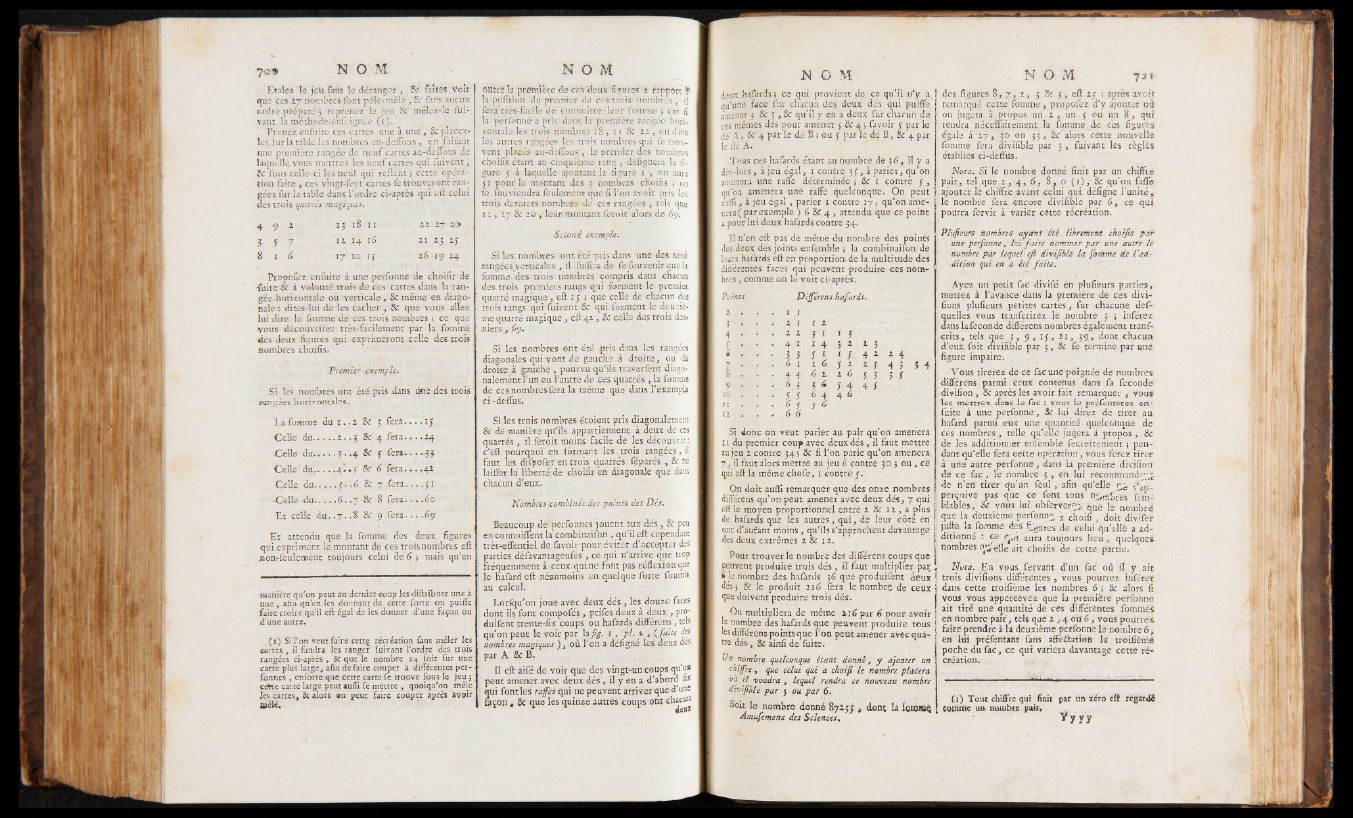 720 NOM
Etalez le jeu sans le déranger, & faites voir
que ces 27 nombres sont pêle-mêle, & sans aucun
ordre préparé; reprenez le jeu & mêlez-le sui-
vant la méthode enseignée (1).
Prenez ensuite ces cartes une à une, & placez-
les sur la table les nombres en-dessous, en faisant
une premiere rangée de neuf cartes au-dessous de
laquelle vous mettrez les neuf cartes qui suivent,
& sous celle-ci les neuf qui restent; cette opéra-
tion faite, ces vingt-sept cartes se trouveront ran-
gées sur la table dans l'ordre ci-après qui est celui
des trois quarrés magiques.
4 9 2 13 18 11 22 27 20
3 5 7 12 14 16 21 23 25
8 1 6 17 10 15 26 19 24
Proposez ensuite à une personne de choisir de
suite & à volonté trois de ces cartes dans la ran-
gée horizontale ou verticale, & même en diago-
nale : dites-lui de les cacher, & que vous allez
lui dire la somme de ces trois nombres; ce que
vous découvrirez très-facilement par la somme
des deux figures qui exprimeront celle des trois
nombres choisis.
Premier exemple.
Si les nombres ont été pris dans une des trois
rangées horizontales.
La somme du 1..2 & 3 sera....15
Celle du.....2..3 & 4 sera....24
Celle du.....3..4 & 5 sera....33
Celle du.....4..5 & 6 sera....42
Celle du.....5..6 & 7 sera....51
Celle du.....6..7 & 8 sera....60
Et celle du..7..8 & 9 sera....69
Et attendu que la somme des deux figures
qui expriment le montant de ces trois nombres est
non-seulement toujours celui de 6; mais qu'en
manière qu'on peut au dernier coup les distribuer une à
une, afin qu'en les donnant de cette sorte on puisse
faire croire qu'il est égal de les donner d'une façon ou
d'une autre.
(1) Si l'on veut faire cette récréation sans mêler les
cartes, il faudra les ranger suivant l'ordre des trois
rangées ci-après, & que le nombre 24 soit sur une
carte plus large, afin de faire couper à différentes per-
sonnes, ensorte que cette carte se trouve sous le jeu;
cette carte large peut aussi se mettre, quoiqu'on mêle
les cartes, & alors on peut faire couper après avoir
mêlé.
NOM
outre la première de ces deux figures a rapport à
la position du premier de ces trois nombres, il
sera très-facile de connoître leur somme; car si
la personne a pris dans la premiere rangée hori-
zontale les trois nombres 18, 11 & 22, ou dans
les autres rangées les trois nombres qui se trou-
vent placés au-dessous, le premier des nombres
choisis étant au cinquième rang, désignera la fi-
gure 5 à laquelle ajoutant la figure 1, on aura
51 pour le montant des 3 nombres choisis; on
se souviendra seulement que si l'on avoit pris les
trois derniers nombres de ces rangées, tels que
22, 27 & 20, leur montant seroit alors de 69.
Second exemple.
Si les nombres ont été pris dans une des neuf
rangées verticales, il suffira de se souvenir que la
somme des trois nombres compris dans chacun
des trois premiers rangs qui forment le premier
quarré magique, est 15; que celle de chacun des
trois rangs qui suivent & qui forment le deuxiè-
me quarre magique, est 42, & celle des trois der-
niers, 69.
Si les nombres ont été pris dans les rangées
diagonales qui vont de gauche à droite, ou de
droite à gauche, pourvu qu'ils traversent diago-
nalement l'un ou l'autre de ces quarrés, la somme
de ces nombres sera la même que dans l'exemple
ci-dessus.
Si les trois nombres étoient pris diagonalement
& de manière qu'ils appartiennent à deux de ces
quarrés, il seroit moins facile de les découvrir:
c'est pourquoi en formant les trois rangées, il
faut les disposer en trois quarrés séparés, & ne
laisser la liberté de choisir en diagonale que dans
chacun d'eux.
Nombres combinés des points des Dés.
Beaucoup de personnes jouent aux dés, & peu
en connoissent la combinaison, qu'il est cependant
très-essentiel de savoir pour éviter d'accepter des
parties désavantageuses, ce qui n'arrive que trop
fréquemment à ceux qui ne font pas réflexion que
le hasard est néanmoins en quelque sorte soumis
au calcul.
Lorsqu'on joue avec deux dés, les douze faces
dont ils sont composés, prises deux à deux, pro-
duisent trente-six coups ou hasards différens, tels
qu'on peut le voir par la fig. 1, pl. 2, (suite des
nombres magiques), où l'on a désigné les deux dés
par A & B.
Il est aisé de voir que des vingt-un coups qu'on
peut amener avec deux dés, il y en a d'abord six
qui sont les rafles qui ne peuvent arriver que d'une
façon, & que les quinze autres coups ont chacun
deux
NOM
deux hasards; ce qui provient de ce qu'il n'y a
qu'une face sur chacun des deux dés qui puisse
amener 3 & 3, & qu'il y en a deux sur chacun de
ces mêmes dés pour amener 5 & 4; savoir 5 par le
dé A, & 4 par le dé B; ou 5 par le dé B, & 4 par
le dé A.
Tous ces hasards étant au nombre de 36, il y a
dès-lors, à jeu égal, 1 contre 35, à parier, qu'on
amenera une rafle déterminée; & 1 contre 5,
qu'on amenera une rafle quelconque. On peut
aussi, à jeu égal, parier 1 contre 17, qu'on ame-
nera (par exemple) 6 & 4, attendu que ce point
a pour lui deux hasards contre 34.
Il n'en est pas de même du nombre des points
des deux dés joints ensemble; la combinaison de
leurs hasards est en proportion de la multitude des
différentes faces qui peuvent produire ces nom-
bres, comme on le voit ci-après.
Points Différens hasards.
2 . . . 1 1
3 . . . 2 1 1 2
4 . . . 2 2 3 1 1 3
5 . . . 4 1 1 4 3 2 2 3
6 . . . 3 3 5 1 1 5 4 2 2 4
7 . . . 6 1 1 6 5 2 2 5 4 3 3 4
8 . . . 4 4 6 2 2 6 5 3 3 5
9 . . . 6 3 3 6 5 4 4 5
10 . . . 5 5 6 4 4 6
11 . . . 6 5 5 6
12 . . . 6 6
Si donc on veut parier au pair qu'on amenera
11 du premier coup avec deux dés, il faut mettre
au jeu 2 contre 34; & si l'on parie qu'on amenera
7, il faut alors mettre au jeu 6 contre 30; ou, ce
qui est la même chose, 1 contre 5.
On doit aussi remarquer que des onze nombres
différens qu'on peut amener avec deux dés, 7 qui
est le moyen proportionnel entre 2 & 12, a plus
de hasards que les autres, qui, de leur côté en
ont d'autant moins, qu'ils s'approchent davantage
des deux extrêmes 2 & 12.
Pour trouver le nombre des différens coups que
peuvent produire trois dés, il faut multiplier par
6 le nombre des hasards 36 que produisent deux
dés; & le produit 216 sera le nombre de ceux
que doivent produire trois dés.
On multipliera de même 216 par 6 pour avoir
le nombre des hasards que peuvent produire tous
les différens points que l'on peut amener avec qua-
tre dés, & ainsi de suite.
Un nombre quelconque étant donné, y ajouter un
chiffre, que celui qui a choisi le nombre placera
où il voudra, lequel rendra ce nouveau nombre
divisible par 3 ou par 6.
Soit le nombre donné 87235, dont la somme
Amusemens des Sciences.
NOM 721
des figures 8, 7, 2, 3 & 5, est 25 : après avoir
remarqué cette somme, proposez d'y ajouter où
on jugera à propos un 2, un 5 ou un 8, qui
rendra nécessairement la somme de ces figures
égale à 27, 30 ou 33, & alors cette nouvelle
somme sera divisible par 3, suivant les règles
établies ci-dessus.
Nota. Si le nombre donné finit par un chiffre
pair, tel que 2, 4, 6, 8, 0 (1), & qu'on fasse
ajouter le chiffre avant celui qui désigne l'unité,
le nombre sera encore divisible par 6, ce qui
pourra servir à varier cette récréation.
Plusieurs nombres ayant été librement choisis par
une personne, lui faire nommer par une autre le
nombre par lequel est divisible la somme de l'ad-
dition qui en a été faite.
Ayez un petit sac divisé en plusieurs parties,
mettez à l'avance dans la première de ces divi-
sions plusieurs petites cartes, sur chacune des-
quelles vous transcrirez le nombre 3; insérez
dans la seconde différens nombres également trans-
crits, tels que 3, 9, 15, 21, 39, dont chacun
d'eux soit divisible par 3, & se termine par une
figure impaire.
Vous tirerez de ce sac une poignée de nombres
différens parmi ceux contenus dans sa seconde
division, & après les avoir fait remarquer, vous
les mettrez dans le sac : vous le présenterez en-
suite à une personne, & lui direz de tirer au
hasard parmi eux une quantité quelconque de
ces nombres, telle qu'elle jugera à propos, &
de les additionner ensemble secrettement; pen-
dant qu'elle fera cette opération, vous ferez tirer
à une autre personne, dans la première division
de ce sac, le nombre 3, en lui recommandant
de n'en tirer qu'un seul, afin qu'elle ne s'ap-
perçoive pas que ce sont tous nombres sem-
blables, & vous lui observerez que le nombre
que la deuxième personne a choisi, doit diviser
juste la somme des figures de celui qu'elle a ad-
ditionné : ce qui aura toujours lieu, quelques
nombres qu'elle ait choisis de cette partie.
Nota. En vous servant d'un sac où il y ait
trois divisions différentes, vous pourrez insérer
dans cette troisième les nombres 6; & alors si
vous vous appercevez que la première personne
ait tiré une quantité de ces différentes sommes
en nombre pair, tels que 2, 4 ou 6, vous pourrez
faire prendre à la deuxième personne le nombre 6,
en lui présentant sans affectation la troisième
poche du sac, ce qui variera davantage cette ré-
création.
(1) Tout chiffre qui finit par un zéro est regardé
comme un nombre pair.
Yyyy